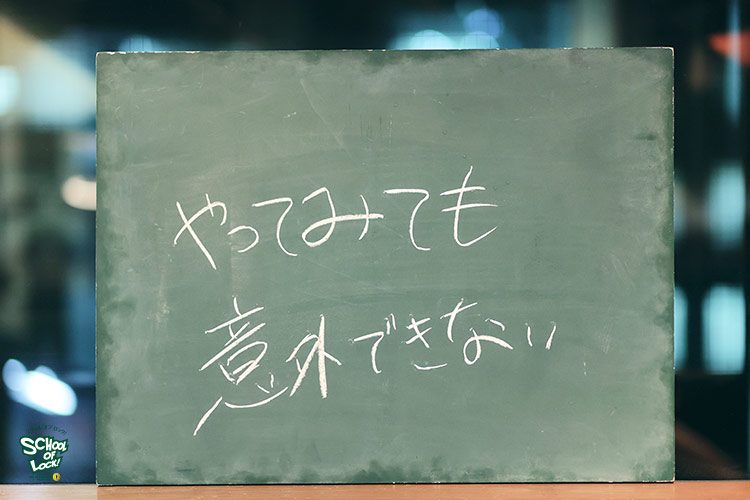 やってみても
意外できない
SCHOOL
OF
LOCK!